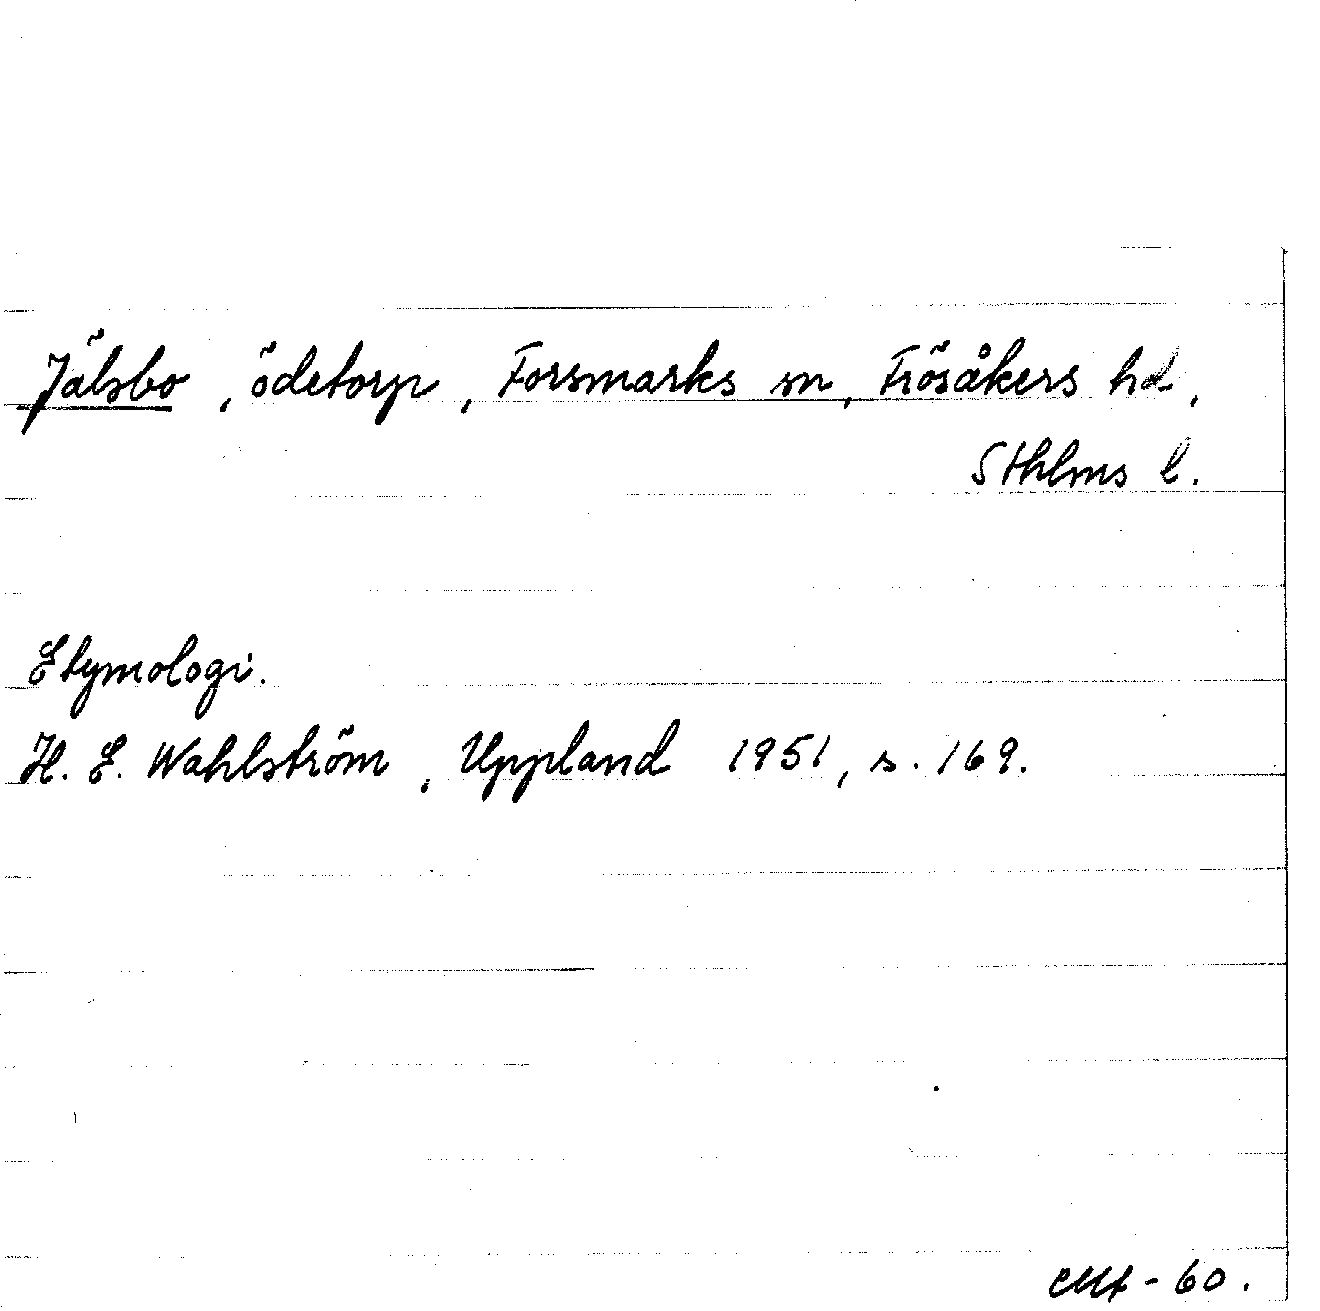 Jälsbo, ödetorp, Forsmarks sn, Frösåkers hd,
Sthlms l.
Etymologi.
H. E. Wahlström, Uppland 1951, s. 169.
-60.